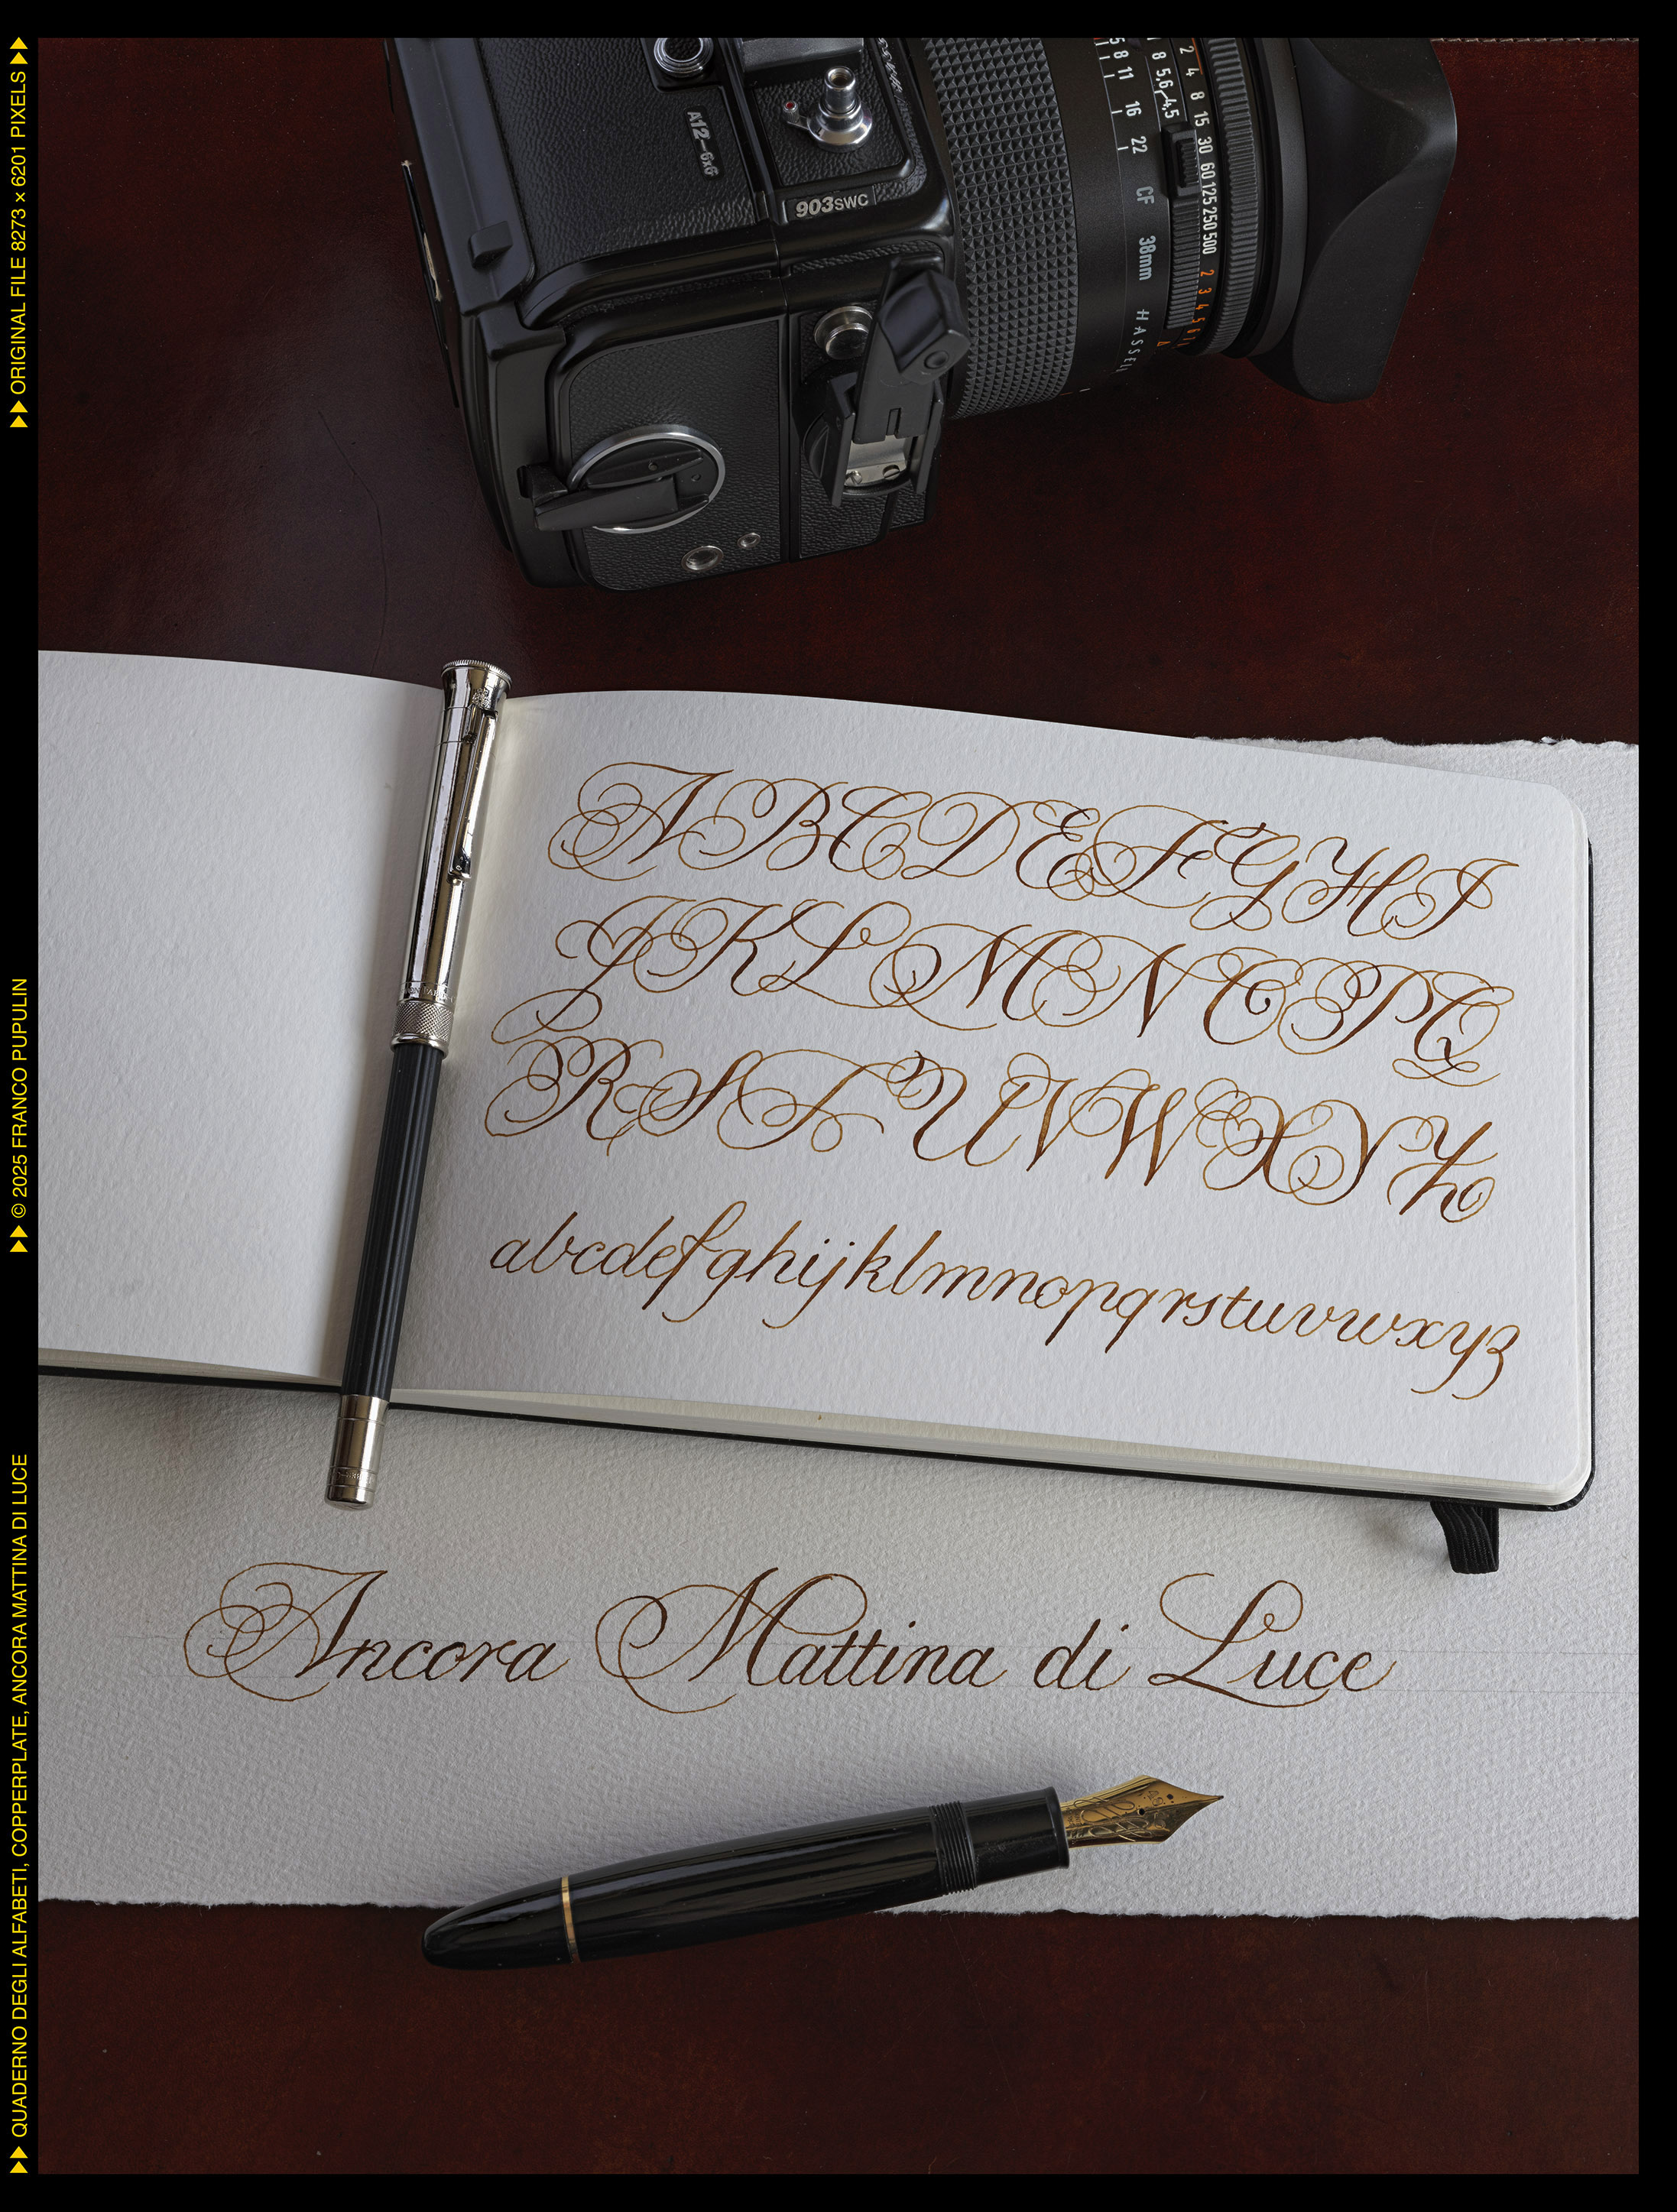 A12-6x6
903SWC
5 8 11 16 22 CF 38mm HASSEL
8 5,6 4,5
2 4 8 15 30 60 125 250 500 2 3 4 5 6 7
ABCDEFGHI
JKLMNOPQ
RSTUVWXYZ
abcdefghijklmnopqrstuvwxyz
Ancora Mattina di Luce
QUADERNO DEGLI ALFABETI, COPPERPLATE, ANCORA MATTINA DI LUCE
© 2025 FRANCO PUPULIN
ORIGINAL FILE 8273 × 6201 PIXELS